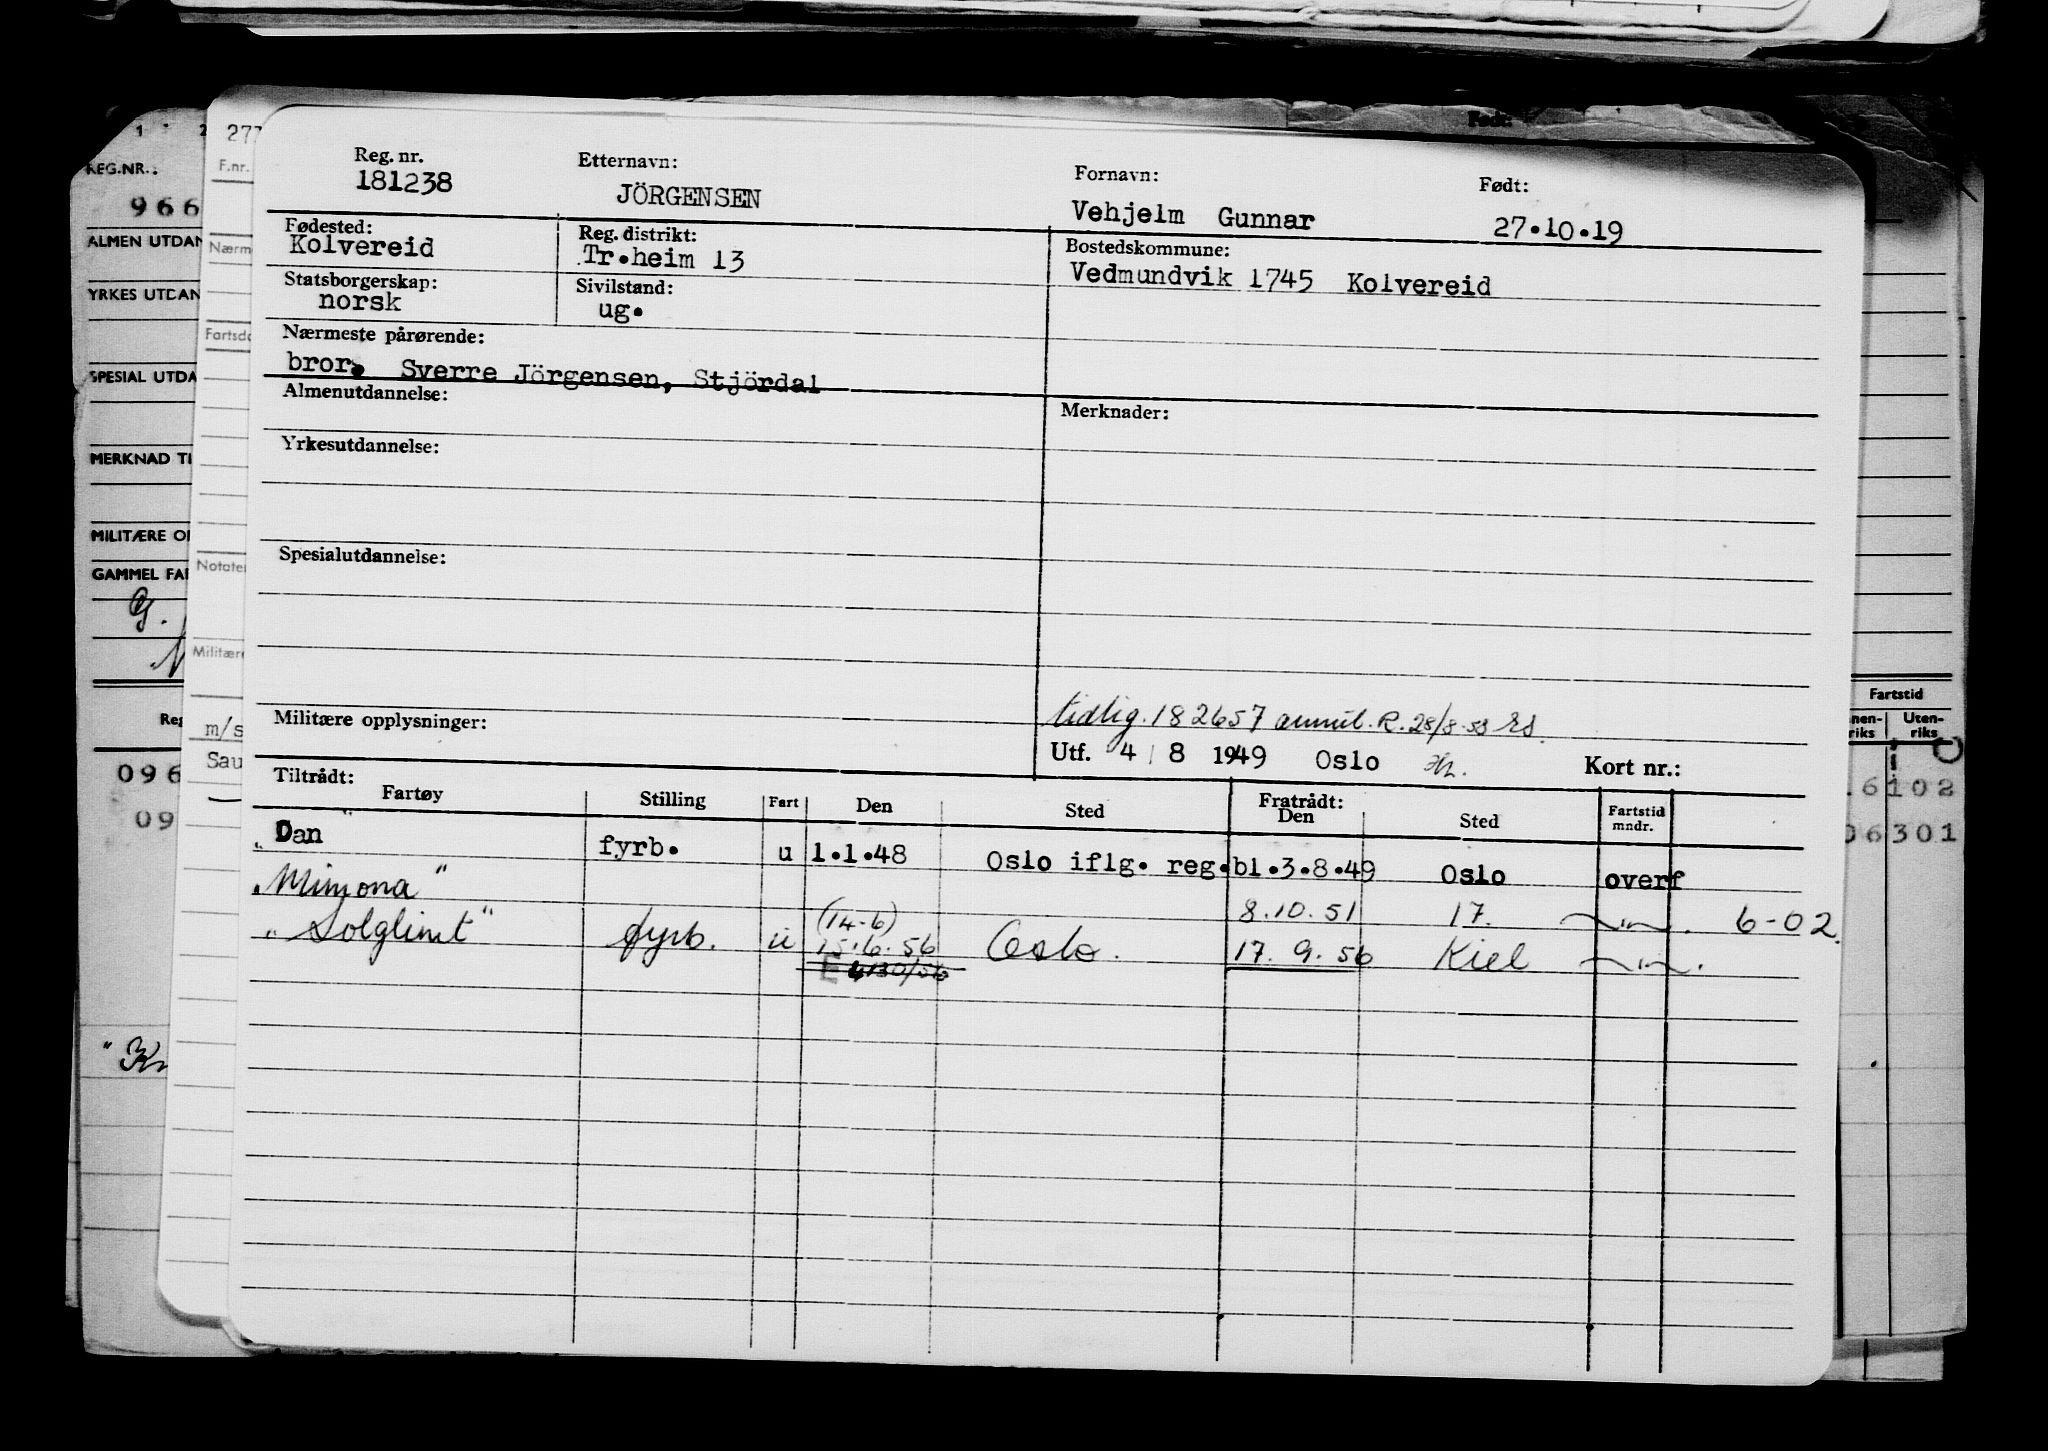 Reg. nr. Etternavn: Fornavn: Født:
181238 JÖRGENSEN Vehjelm Gunnar 27.10.19
Fødested: Reg. distrikt: Bostedskommune:
Kolvereid Tr.heim 13 Vedmundvik 1745 Kolvereid
Statsborgerskap: Sivilstand:
norsk ug.
Nærmeste pårørende:
bror. Sverre Jörgensen, Stjördal
Almenutdannelse: Merknader:
Yrkesutdannelse:
Spesialutdannelse:
tidlig. 182657 annul. R. 28/8-53
Militære opplysninger: Utf. 4/8 1949 Oslo Kort nr.:
Tiltrådt: Fratrådt:
Fartøy Stilling Fart Den Sted Den Sted Fartstid mndr.
"Dan" fyrb. u 1.1.48 Oslo iflg. reg.bl. 3.8.49 Oslo overf
"Mimona" 8.10.51 17. 6-02
(14-6)
"Solglimt" fyrb. u 15.6.56 Oslo. 17.9.56 Kiel
REG.NR.:
966
ALMEN UTDAN
YRKES UTDAN
SPESIAL UTDA
MERKNAD TI
MILITÆRE O
GAMMEL FA
Reg
096
09
277
F.nr.
Nærm
Fartsdo
Notater
Militære
m/s
Sau
Født:
Fartstid
nen-riks Uten-riks
6 102
06 301